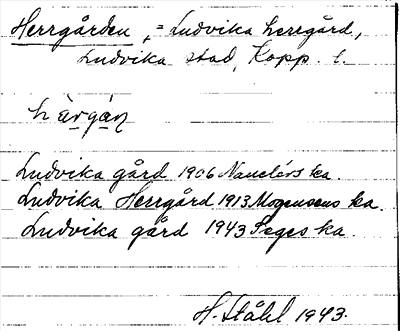 Herrgården, = Ludvika herrgård,
Ludvika stad, Kopp. l.
hærgán
Ludvika gård 1906 Nauclérs ka.
Ludvika Herrgård 1913 Mogensens ka.
Ludvika gård 1943 Sages ka.
H. Ståhl 1943.